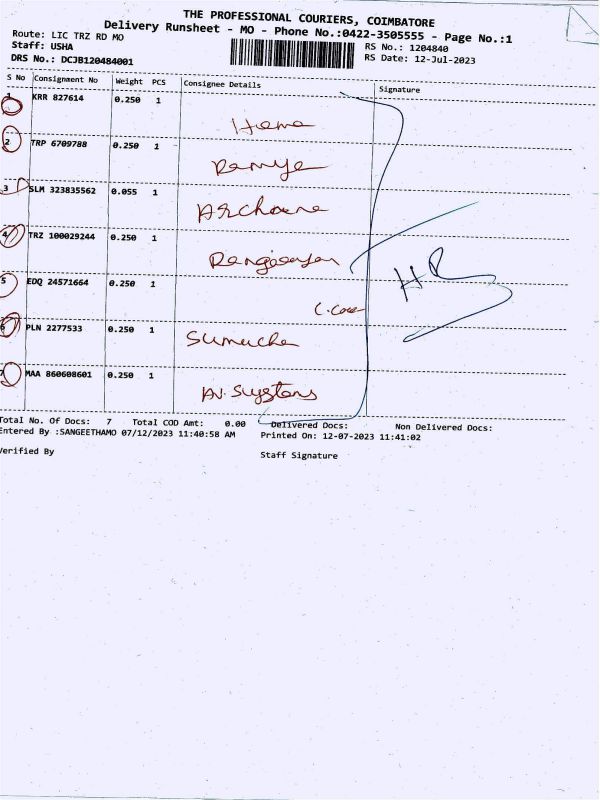 THE PROFESSIONAL COURIERS, COIMBATORE
Delivery Runsheet - MO - Phone No.:0422-3505555 - Page No.:1
Route: LIC TRZ RD MO
RS No.: 1204840
Staff: USHA
RS Date: 12-Jul-2023
DRS No.: DCJB120484001
S No Consignment No Weight PCS Consignee Details Signature
1 KRR 827614 0.250 1
Hema
2 TRP 6709788 0.250 1
Ramya
3 SLM 323835562 0.055 1
Archana
4 TRZ 100029244 0.250 1
HR
5 EDQ 24571664 0.250 1
6 PLN 2277533 0.250 1
7 MAA 860608601 0.250 1
AV. Systems
Total No. Of Docs: 7 Total COD Amt: 0.00 Delivered Docs: Non Delivered Docs:
Entered By :SANGEETHAMO 07/12/2023 11:40:58 AM Printed On: 12-07-2023 11:41:02
Verified By Staff Signature